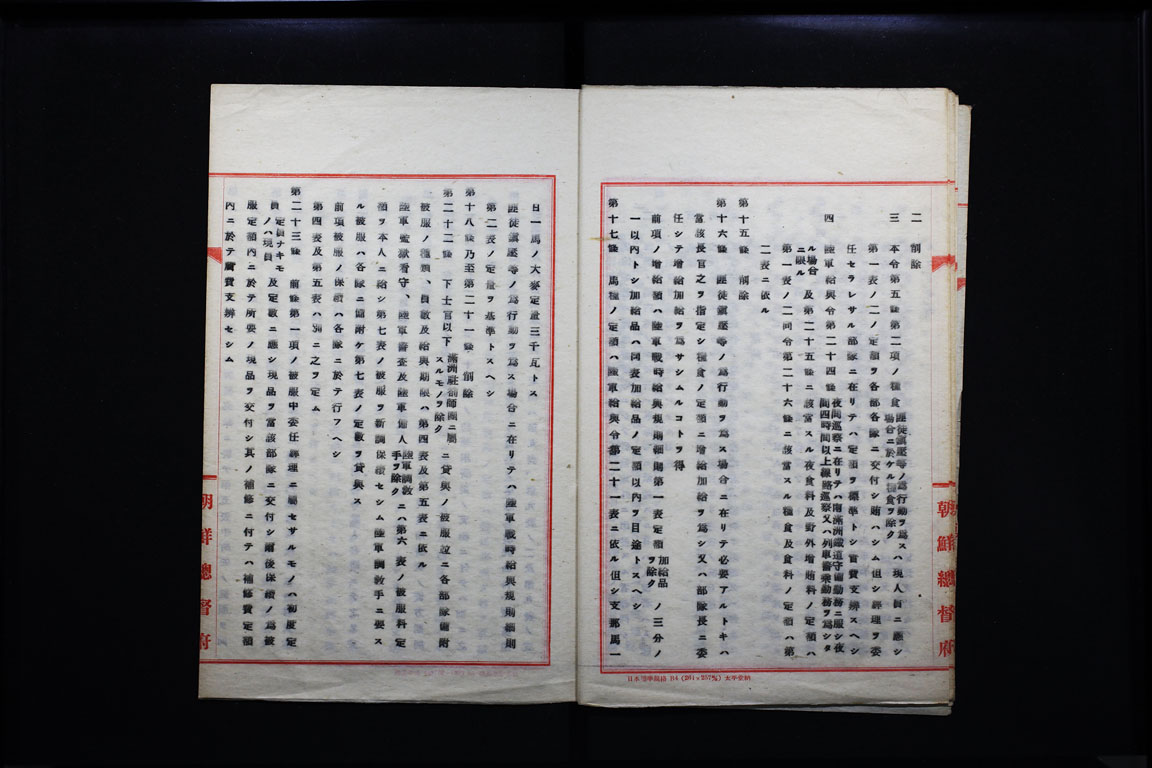 二 削除
三 本令第五條第二項ノ糧食 匪徒鎭壓等ノ爲行動ヲ爲ス場合ニ於ケル糧食ヲ除ク ハ現人員ニ應シ
第一表ノ二ノ定額ヲ各部各隊ニ交付シ賄ハシム但シ經理ヲ委
任セラレサル部隊ニ在リテハ定額ヲ標準トシ實費支辨スヘシ
四 陸軍給與令第二十四條 夜間巡察ニ在リテハ南滿洲鐵道守備勤務ニ服シ夜間四時間以上線路巡察又ハ列車警乘勤務ヲ爲シタ
ル場合ニ限ル 及第二十五條ニ該當スル夜食料及野外增賄料ノ定額ハ
第一表ノ二同令第二十六條ニ該當スル糧食及食料ノ定額ハ第
二表ニ依ル
第十五條 削除
第十六條 匪徒鎭壓等ノ爲行動ヲ爲ス場合ニ在リテ必要アルトキハ
當該長官之ヲ指定シ糧食ノ定額ニ增給加給ヲ爲シ又ハ部隊長ニ委
任シテ增給加給ヲ爲サシムルコトヲ得
前項ノ增給額ハ陸軍戰時給與規則細則第一表定額 加給品ヲ除ク ノ三分ノ
一以內トシ加給品ハ同表加給品ノ定額以內ヲ目途トスヘシ
第十七條 馬糧ノ定額ハ陸軍給與令第二十一表ニ依ル但シ支那馬一
日一馬ノ大麥定量三千瓦トス
匪徒鎭壓等ノ爲行動ヲ爲ス場合ニ在リテハ陸軍戰時給與規則細則
第二表ノ定量ヲ基準トスヘシ
第十八條乃至第二十一條 削除
第二十二條 下士官以下 滿洲駐剳師團ニ屬スルモノヲ除ク ニ貸與ノ被服竝ニ各部隊備附
被服ノ種類、員數及給與期限ハ第四表及第五表ニ依ル
陸軍監獄看守、陸軍警査及陸軍傭人 陸軍調敎手ヲ除ク ニハ第六表ノ被服料定
額ヲ本人ニ給シ第七表ノ被服ヲ新調保續セシム陸軍調敎手ニ要ス
ル被服ハ各隊ニ備附ケ第七表ノ定數ヲ貸與ス
前項被服ノ保續ハ各隊ニ於テ行フヘシ
第四表及第五表ハ別ニ之ヲ定ム
第二十三條 前條第一項ノ被服中委任經理ニ屬セサルモノハ初度定
員 定員ナキモノハ現員 及定數ニ應シ現品ヲ當該部隊ニ交付シ爾後保續ノ爲被
服定額內ニ於テ所要ノ現品ヲ交付シ其ノ補修ニ付テハ補修費定額
內ニ於テ實費支辨セシム
朝鮮總督府
朝鮮總督府
日本標準規格 B4 (264×257㎜)